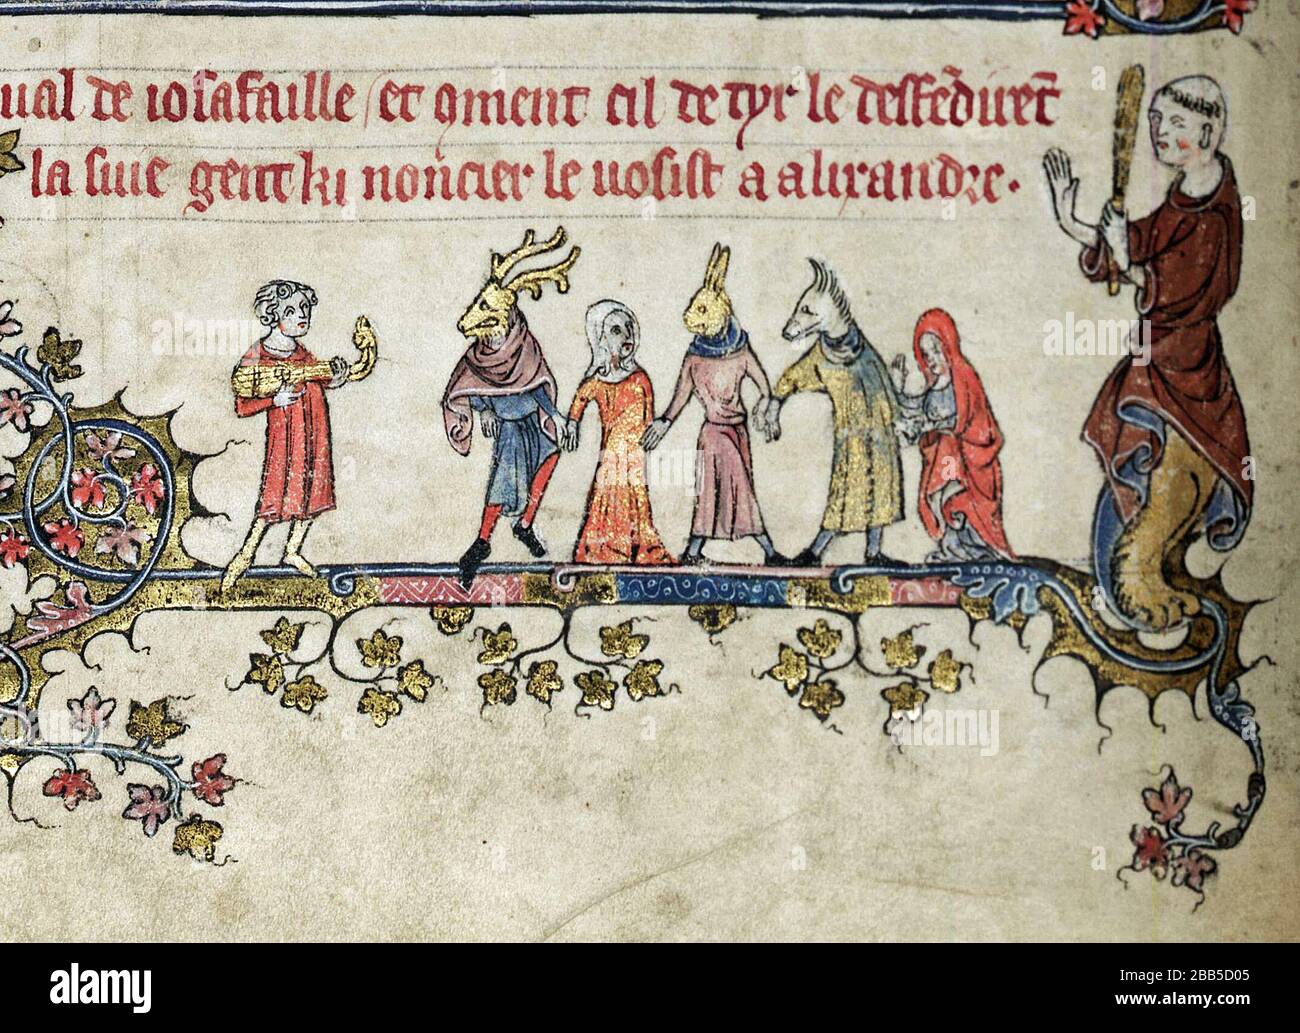 ual de iosafaille / et qment cil de tyr le deffēdirēt
la suie gent ki noncier le uosist a alixandre.
alamy
Image ID: 2BB5D05
www.alamy.com